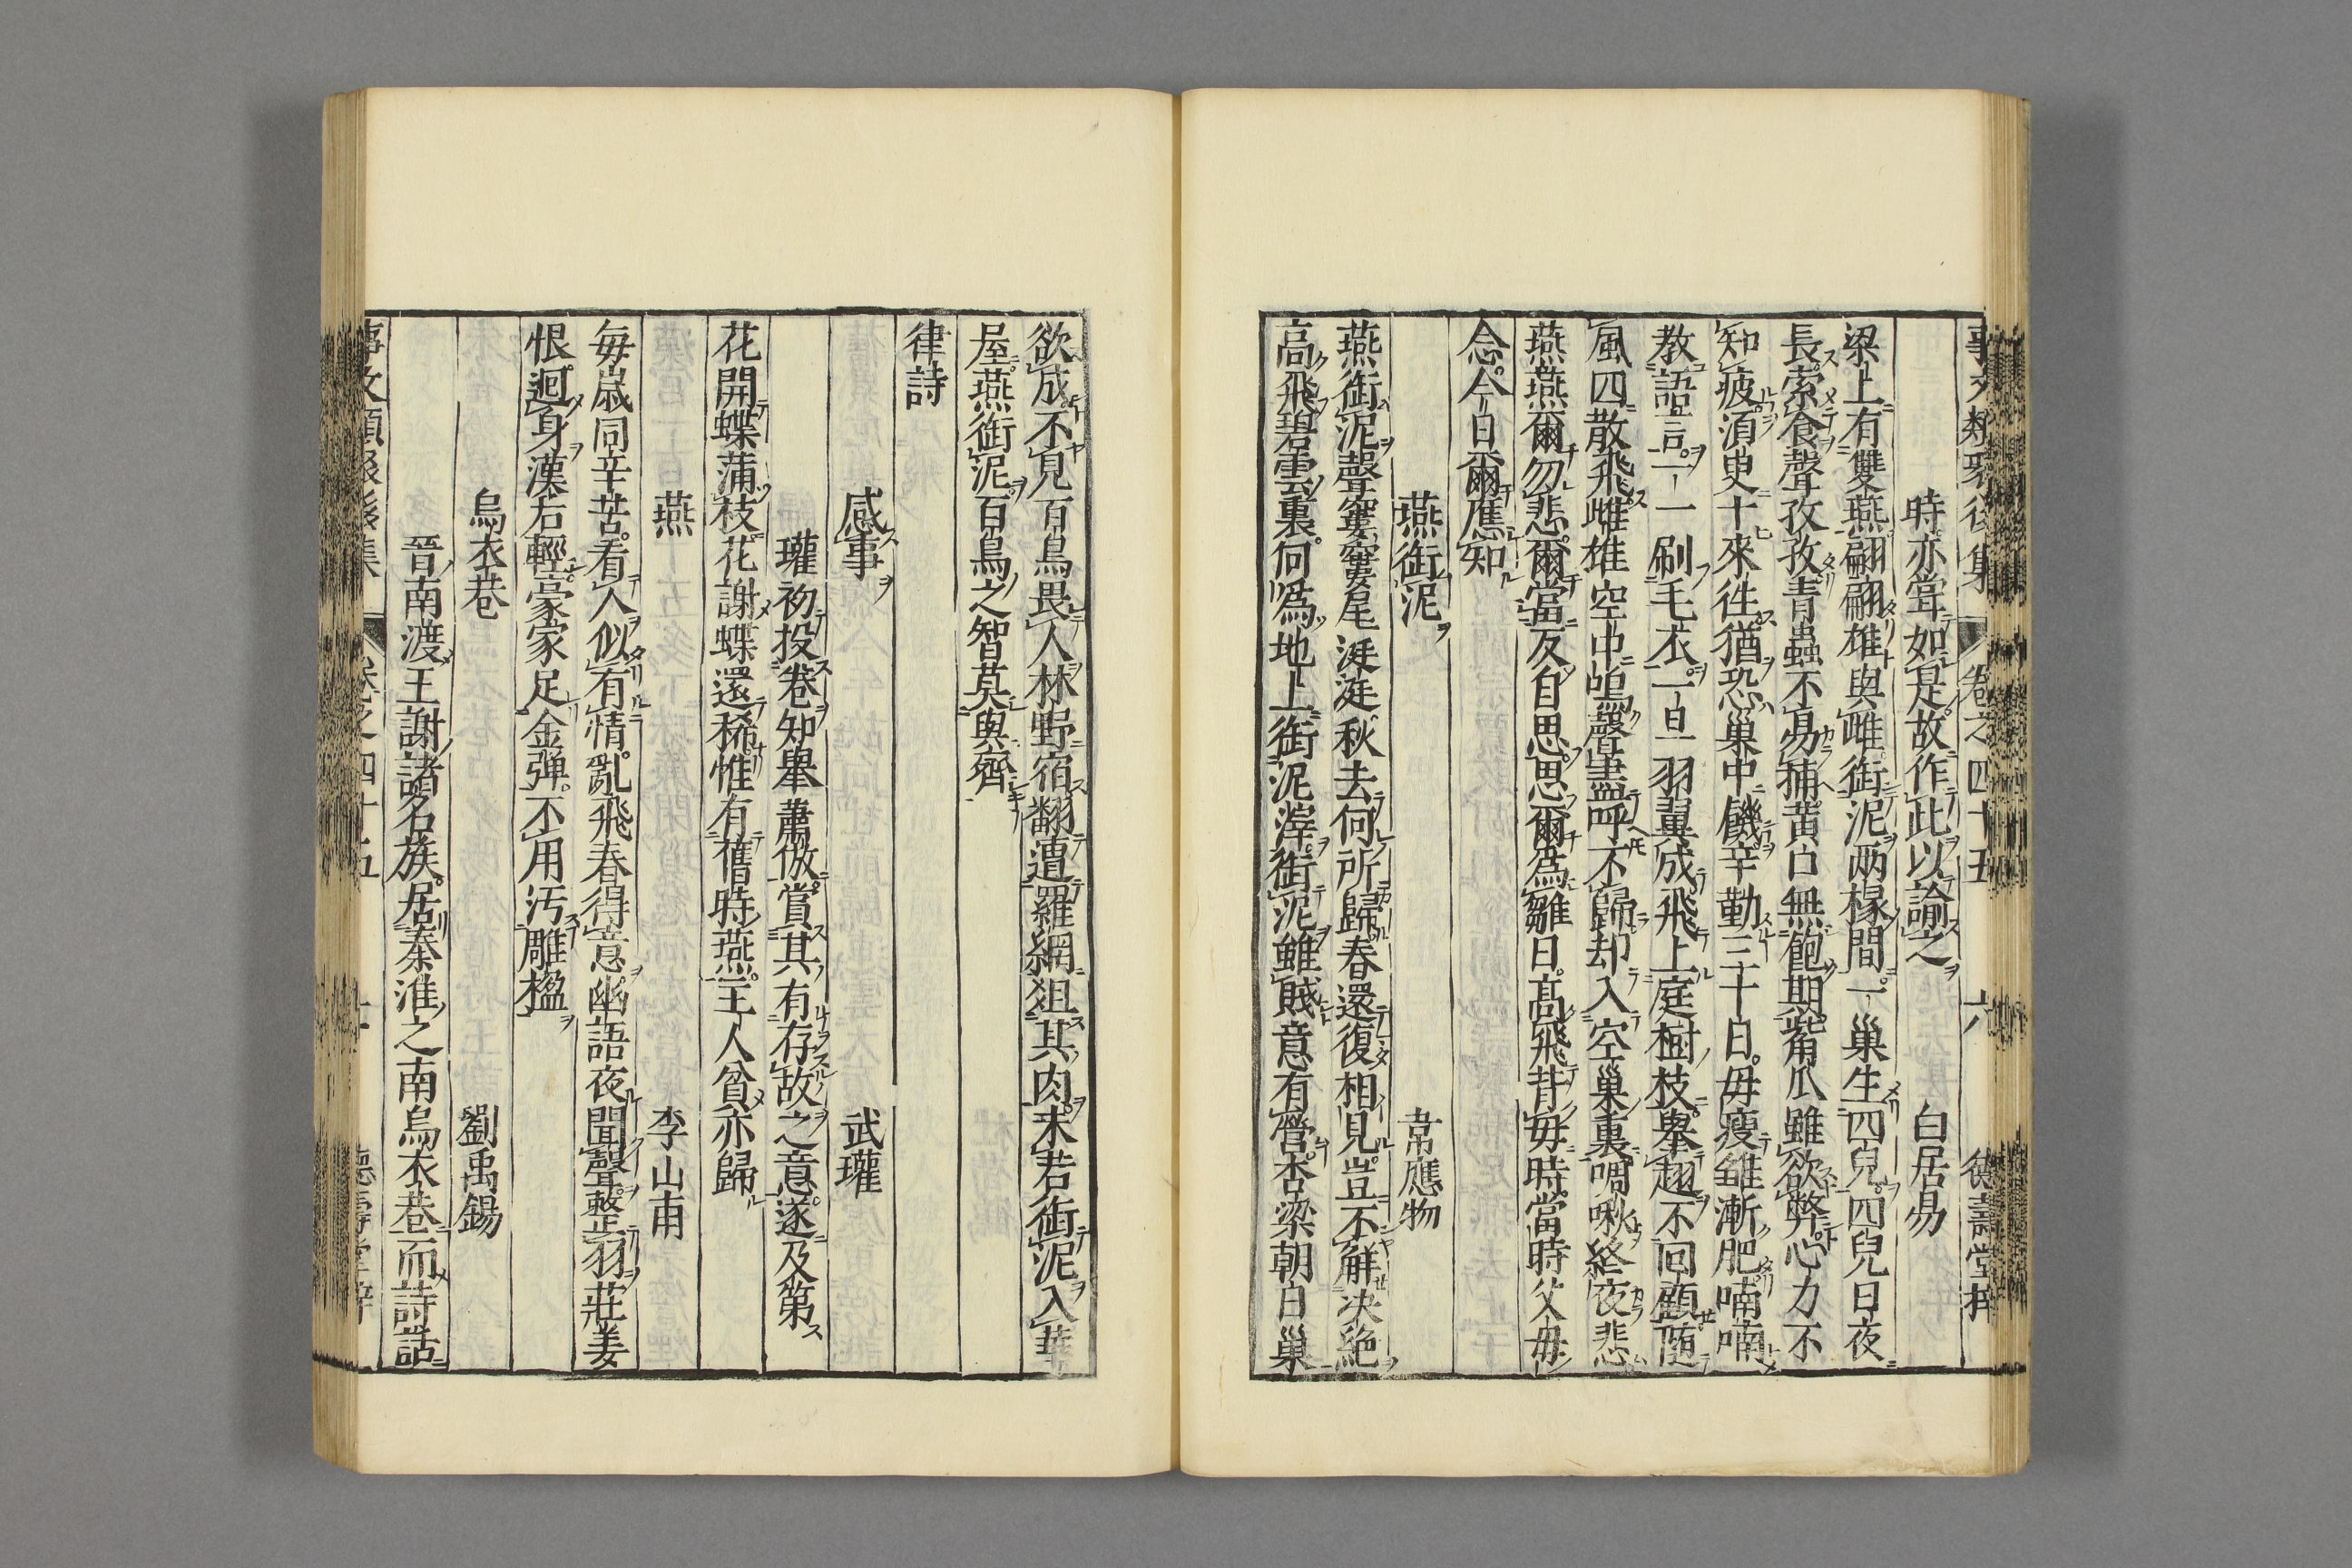 事文類聚後集 卷之四十五 六 德壽堂梓
時亦甞如是故作此以諭之 白居易
梁上有雙燕翩翩雄與雌銜泥兩椽間一巢生四兒四兒日夜
長索食聲孜孜青蟲不易捕黃口無飽期觜爪雖欲弊心力不
知疲湏臾十來徃猶恐巢中饑辛勤三十日母瘦雛漸肥喃喃
教語言一一刷毛衣一旦羽翼成飛上庭樹枝舉翅不回顧隨
風四散飛雌雄空中鳴聲盡呼不歸却入空巢裏啁啾終夜悲
燕燕爾勿悲爾當反自思思爾為雛日高飛背母時當時父母
念今日爾應知
燕銜泥 韋應物
燕銜泥聲窶窶尾涎涎秋去何所歸春還復相見豈不解決絕
高飛碧雲裏何為地上銜泥滓銜泥雖賤意有營杏梁朝日巢
欲成不見百鳥畏人林野宿翻遭羅網俎其肉未若銜泥入華
屋燕銜泥百鳥之智莫與齊
律詩
感事 武瓘
瓘初投卷知舉蕭倣賞其有存故之意遂及第
花開蝶滿枝花謝蝶還稀惟有舊時燕主人貧亦歸
燕 李山甫
每歲同辛苦看人似有情亂飛春得意幽語夜聞聲整羽莊姜
恨迴身漢右輕豪家足金彈不用污雕楹
烏衣巷 劉禹錫
晉南渡王謝諸名族居秦淮之南烏衣巷而詩話
事文類聚後集 卷之四十五